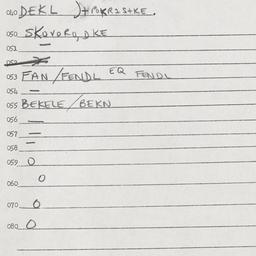 040 DEKL
050 SKOVORO, DKE
051 —
052
053 FAN/FENDL EQ FENDL
054 —
055 BEKELE/BEKN
056 —
057 —
058 —
059 O
060 O
070 O
080 O